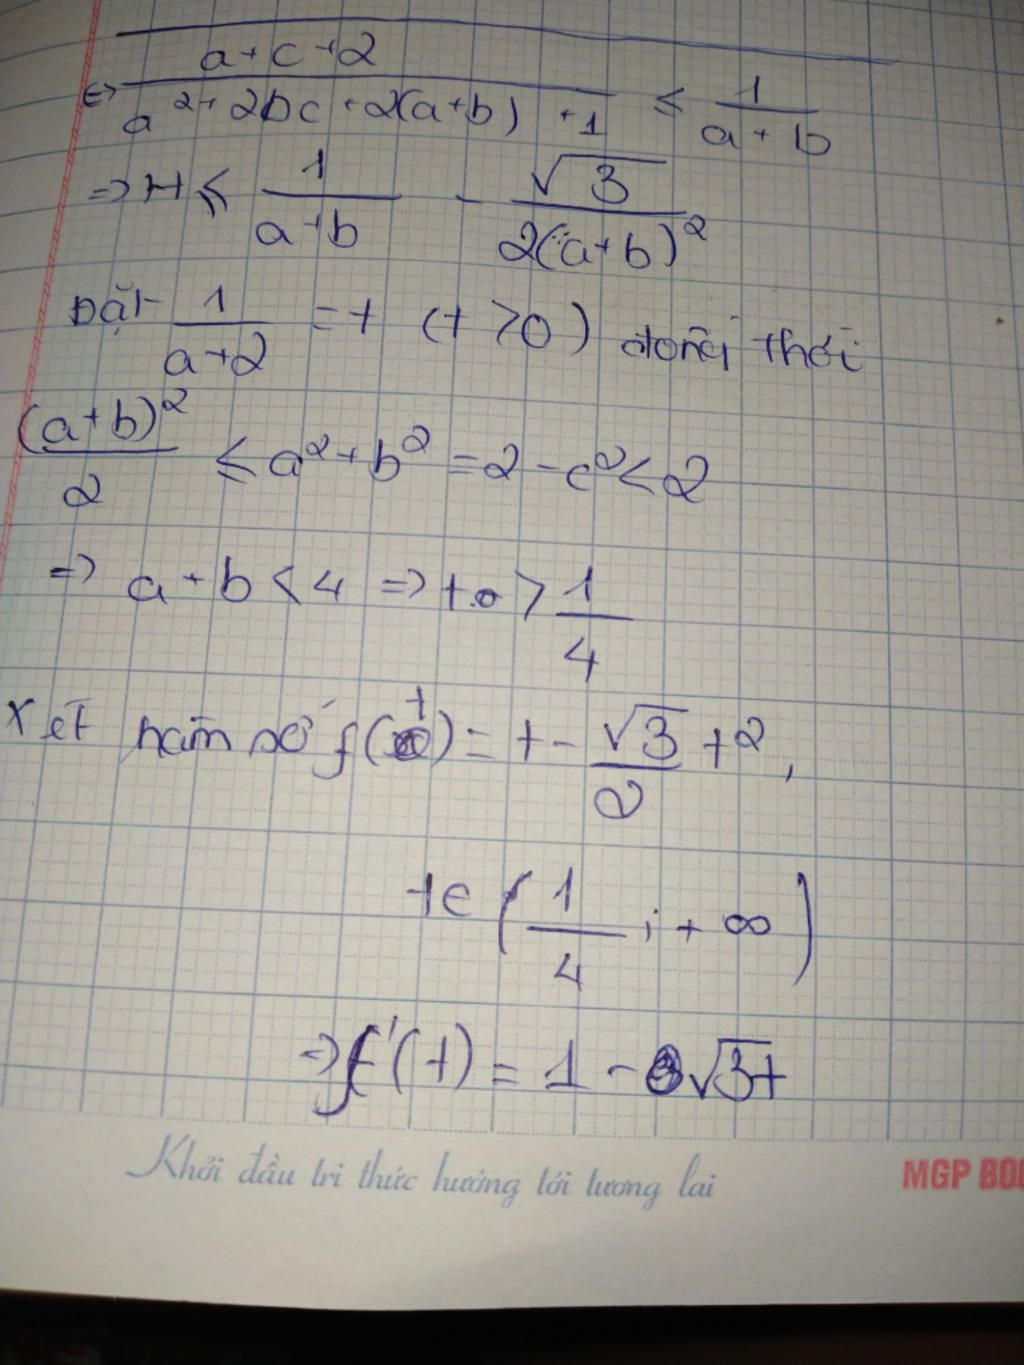 ⇔ \frac{a+c+2}{a^2+2bc+2(a+b)+1} ≤ \frac{1}{a+b}
⇒ H ≤ \frac{1}{a+b} - \frac{\sqrt{3}}{2(a+b)^2}
Đặt \frac{1}{a+2} = t (t>0) đồng thời
\frac{(a+b)^2}{2} ≤ a^2+b^2 = 2-c^2 < 2
⇒ a+b < 4 ⇒ t > \frac{1}{4}
Xét hàm số f(t) = t - \frac{\sqrt{3}}{2} t^2,
t ∈ (\frac{1}{4}; +∞)
⇒ f'(t) = 1 - \sqrt{3t}
Khởi đầu tri thức hướng tới tương lai
MGP